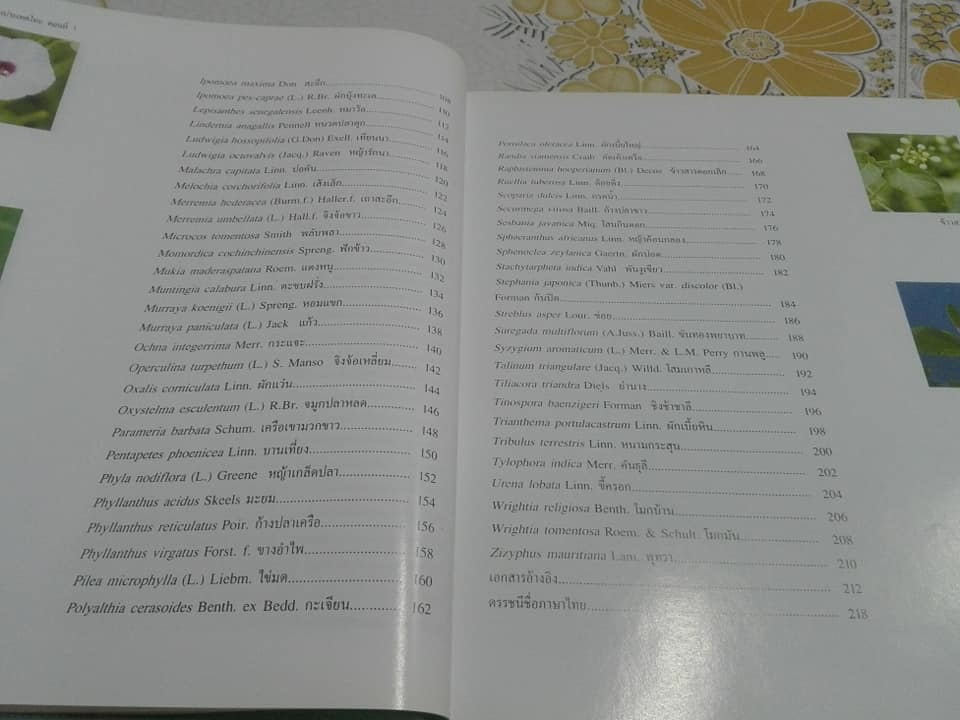 ตอนที่ 1
Ipomoea maxima Don สะอึก 108
Ipomoea pes-caprae (L.) R.Br. ผักบุ้งทะเล 110
Lepisanthes senegalensis Leenh. หมาว้อ 112
Lindernia anagallis Pennell หนวดปลาดุก 114
Ludwigia hyssopifolia (G.Don) Exell. เทียนนา 116
Ludwigia octovalvis (Jacq.) Raven หญ้ารักนา 118
Malachra capitata Linn. ปอคัน 120
Melochia corchorifolia Linn. เส็งเล็ก 122
Merremia hederacea (Burm.f.) Haller.f. เถาสะอึก 124
Merremia umbellata (L.) Hall.f. จิงจ้อขาว 126
Microcos tomentosa Smith พลับพลา 128
Momordica cochinchinensis Spreng. ฟักข้าว 130
Mukia maderaspatana Roem. แตงหนู 132
Muntingia calabura Linn. ตะขบฝรั่ง 134
Murraya koenigii (L.) Spreng. หอมแขก 136
Murraya paniculata (L.) Jack แก้ว 138
Ochna integerrima Merr. กระแจะ 140
Operculina turpethum (L.) S. Manso จิงจ้อเหลี่ยม 142
Oxalis corniculata Linn. ผักแว่น 144
Oxystelma esculentum (L.) R.Br. จมูกปลาหลด 146
Parameria barbata Schum. เครือเขามวกขาว 148
Pentapetes phoenicea Linn. บานเที่ยง 150
Phyla nodiflora (L.) Greene หญ้าเกล็ดปลา 152
Phyllanthus acidus Skeels มะยม 154
Phyllanthus reticulatus Poir. ก้างปลาเครือ 156
Phyllanthus virgatus Forst. f. ขางอำไพ 158
Pilea microphylla (L.) Liebm. ไข่มด 160
Polyalthia cerasoides Benth. ex Bedd. กะเจียน 162
Portulaca oleracea Linn. ผักเบี้ยใหญ่ 164
Randia siamensis Craib คัดเค้าเครือ 166
Raphistemma hooperianum (Bl.) Decne ข้าวสารดอกเล็ก 168
Ruellia tuberosa Linn. ต้อยติ่ง 170
Scoparia dulcis Linn. กรดน้ำ 172
Securinega virosa Baill. ก้างปลาขาว 174
Sesbania javanica Miq. โสนกินดอก 176
Sphaeranthus africanus Linn. หญ้าค้อนกลอง 178
Sphenoclea zeylanica Gaertn. ผักปอด 180
Stachytarpheta indica Vahl พันงูเขียว 182
Stephania japonica (Thunb.) Miers var. discolor (Bl.)
Forman ก้นปิด 184
Streblus asper Lour. ข่อย 186
Suregada multiflorum (A.Juss.) Baill. ขันทองพยาบาท 188
Syzygium aromaticum (L.) Merr. & L.M. Perry กานพลู 190
Talinum triangulare (Jacq.) Willd. โสมเกาหลี 192
Tiliacora triandra Diels ย่านาง 194
Tinospora baenzigeri Forman ชิงช้าชาลี 196
Trianthema portulacastrum Linn. ผักเบี้ยหิน 198
Tribulus terrestris Linn. หนามกระสุน 200
Tylophora indica Merr. ค้นธุลี 202
Urena lobata Linn. ขี้ครอก 204
Wrightia religiosa Benth. โมกบ้าน 206
Wrightia tomentosa Roem. & Schult. โมกมัน 208
Zizyphus mauritiana Lam. พุทรา 210
เอกสารอ้างอิง 212
ดรรชนีชื่อภาษาไทย 218